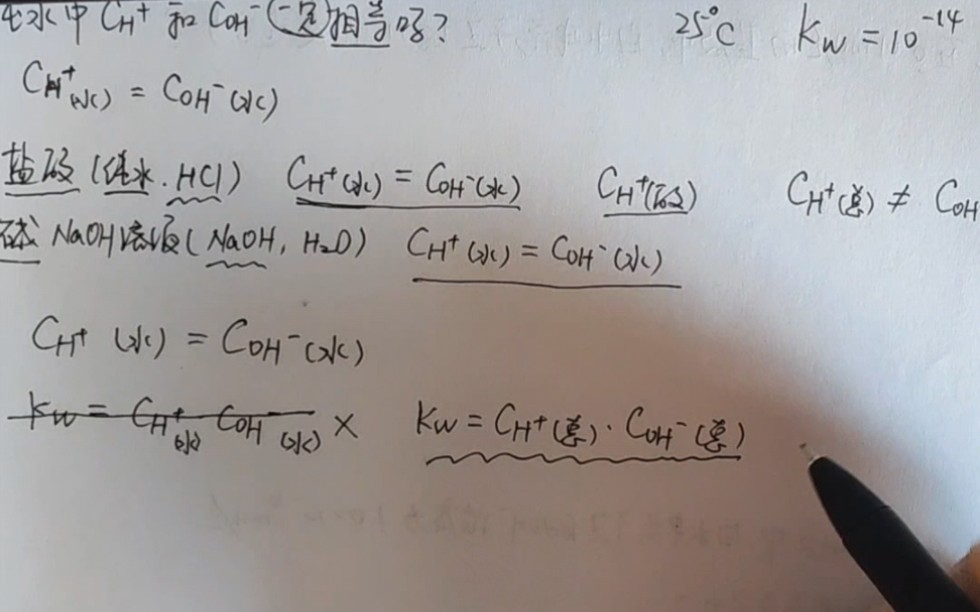 水中 CH⁺ 和 COH⁻ (一定)相等吗? 25°C Kw = 10⁻¹⁴
CH⁺(水) = COH⁻(水)
盐酸 (纯水. HCl) CH⁺(水) = COH⁻(水) CH⁺(酸) CH⁺(总) ≠ COH
碱 NaOH溶液 (NaOH, H₂O) CH⁺(水) = COH⁻(水)
CH⁺(水) = COH⁻(水)
Kw = CH⁺(水) COH(水) × Kw = CH⁺(总) · COH⁻(总)